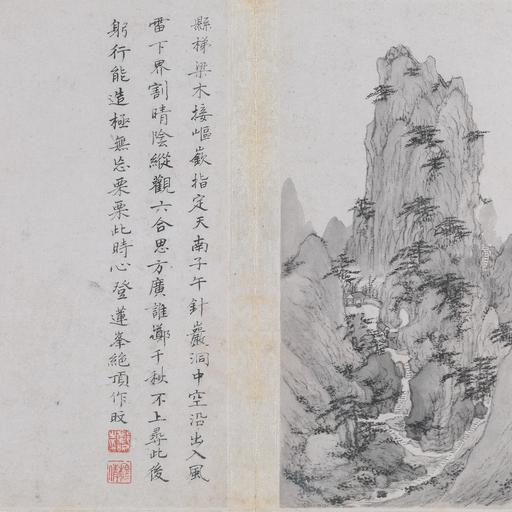 縣梯梁木接嶇嶔指定天南子午針巖洞中空沿出入風
雷下界割晴陰縱觀六合思方廣誰鄭千秋不上尋此後
躬行能造極無忘栗栗此時心登蓮峯絕頂作旼